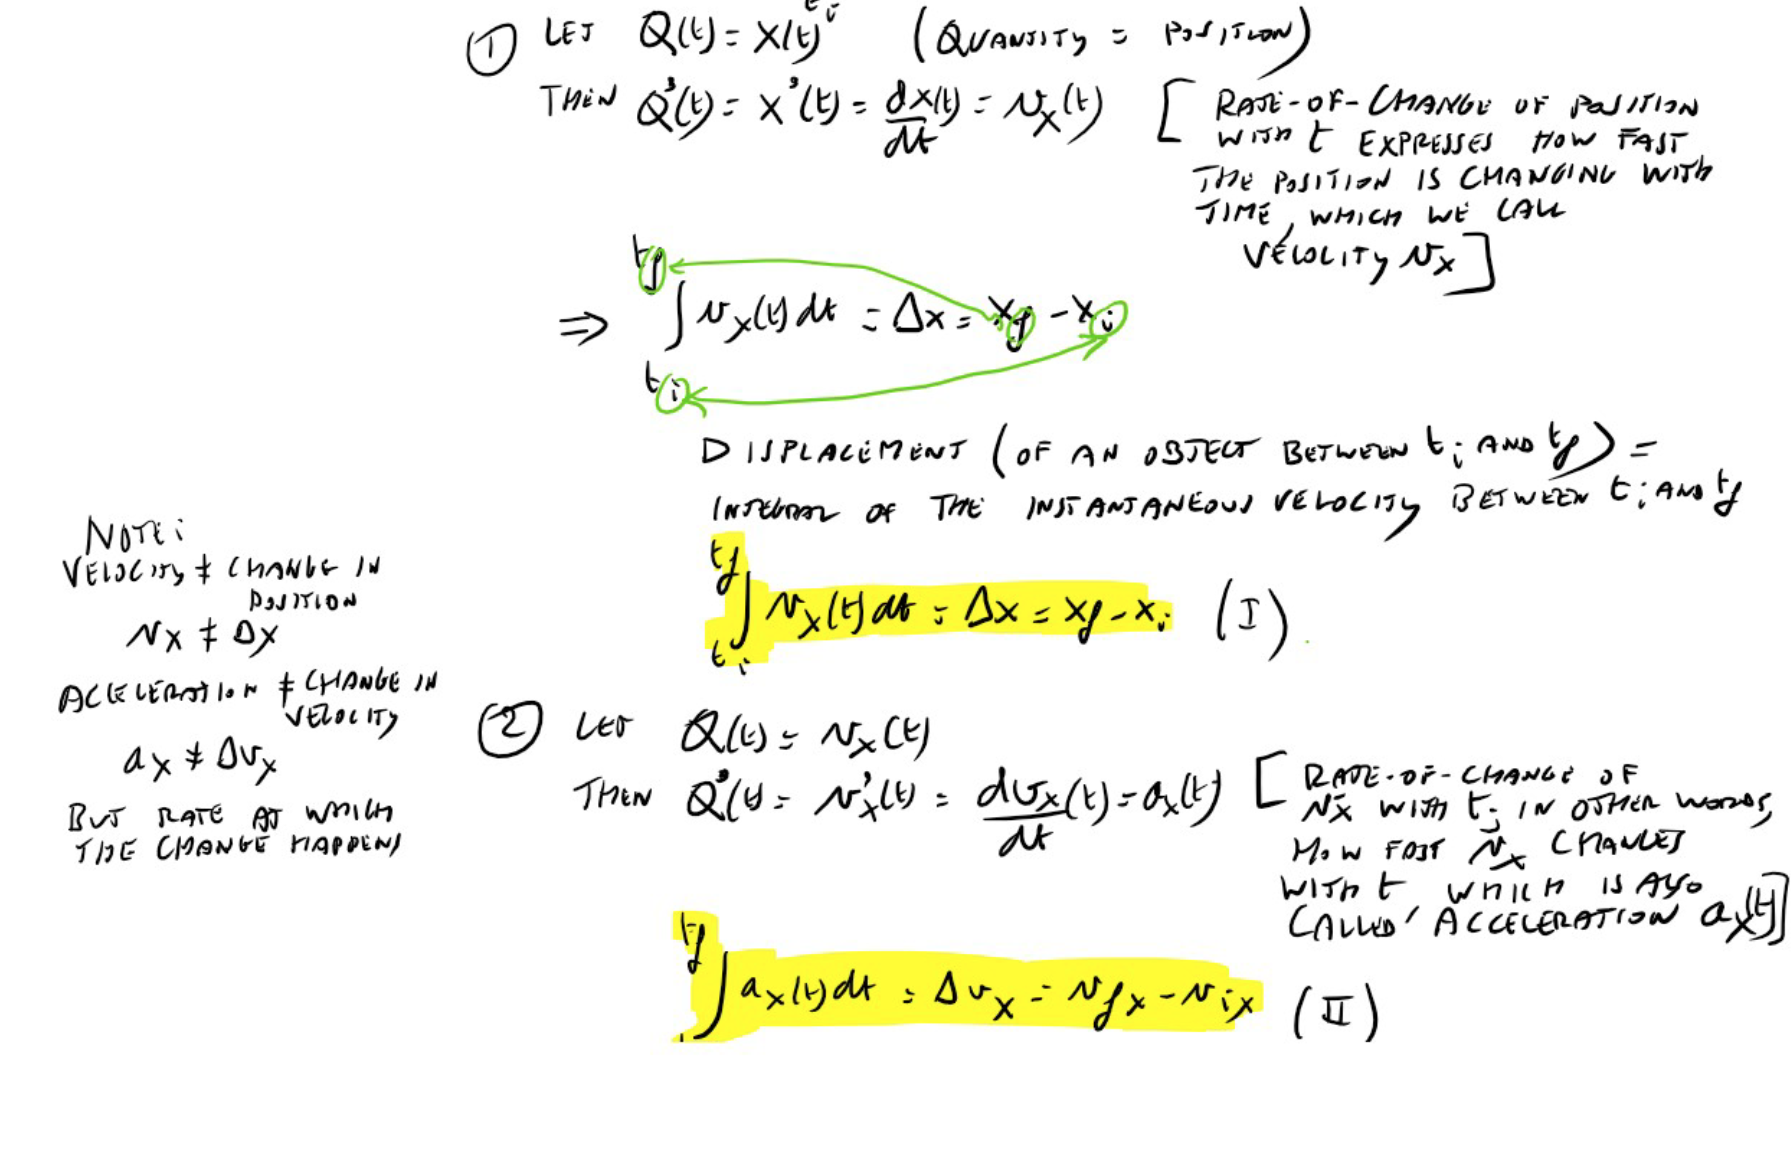 ① LET Q(t) = X(t) (QUANTITY = POSITION)
THEN Q'(t) = X'(t) = dx(t)/dt = v_x(t)
[RATE-OF-CHANGE OF POSITION
WITH t EXPRESSES HOW FAST
THE POSITION IS CHANGING WITH
TIME, WHICH WE CALL
VELOCITY v_x]
⇒ ∫_{t_i}^{t_f} v_x(t) dt = Δx = x_f - x_i
DISPLACEMENT (OF AN OBJECT BETWEEN t_i AND t_f) =
INTEGRAL OF THE INSTANTANEOUS VELOCITY BETWEEN t_i AND t_f
∫_{t_i}^{t_f} v_x(t) dt = Δx = x_f - x_i (I)
NOTE:
VELOCITY ≠ CHANGE IN
POSITION
v_x ≠ Δx
ACCELERATION ≠ CHANGE IN
VELOCITY
a_x ≠ Δv_x
BUT RATE AT WHICH
THE CHANGE HAPPENS
② LET Q(t) = v_x(t)
THEN Q'(t) = v'_x(t) = dv_x/dt (t) = a_x(t)
[RATE-OF-CHANGE OF
v_x WITH t; IN OTHER WORDS,
HOW FAST v_x CHANGES
WITH t WHICH IS ALSO
CALLED ACCELERATION a_x(t)]
∫^{t_f} a_x(t) dt = Δv_x = v_fx - v_ix (II)